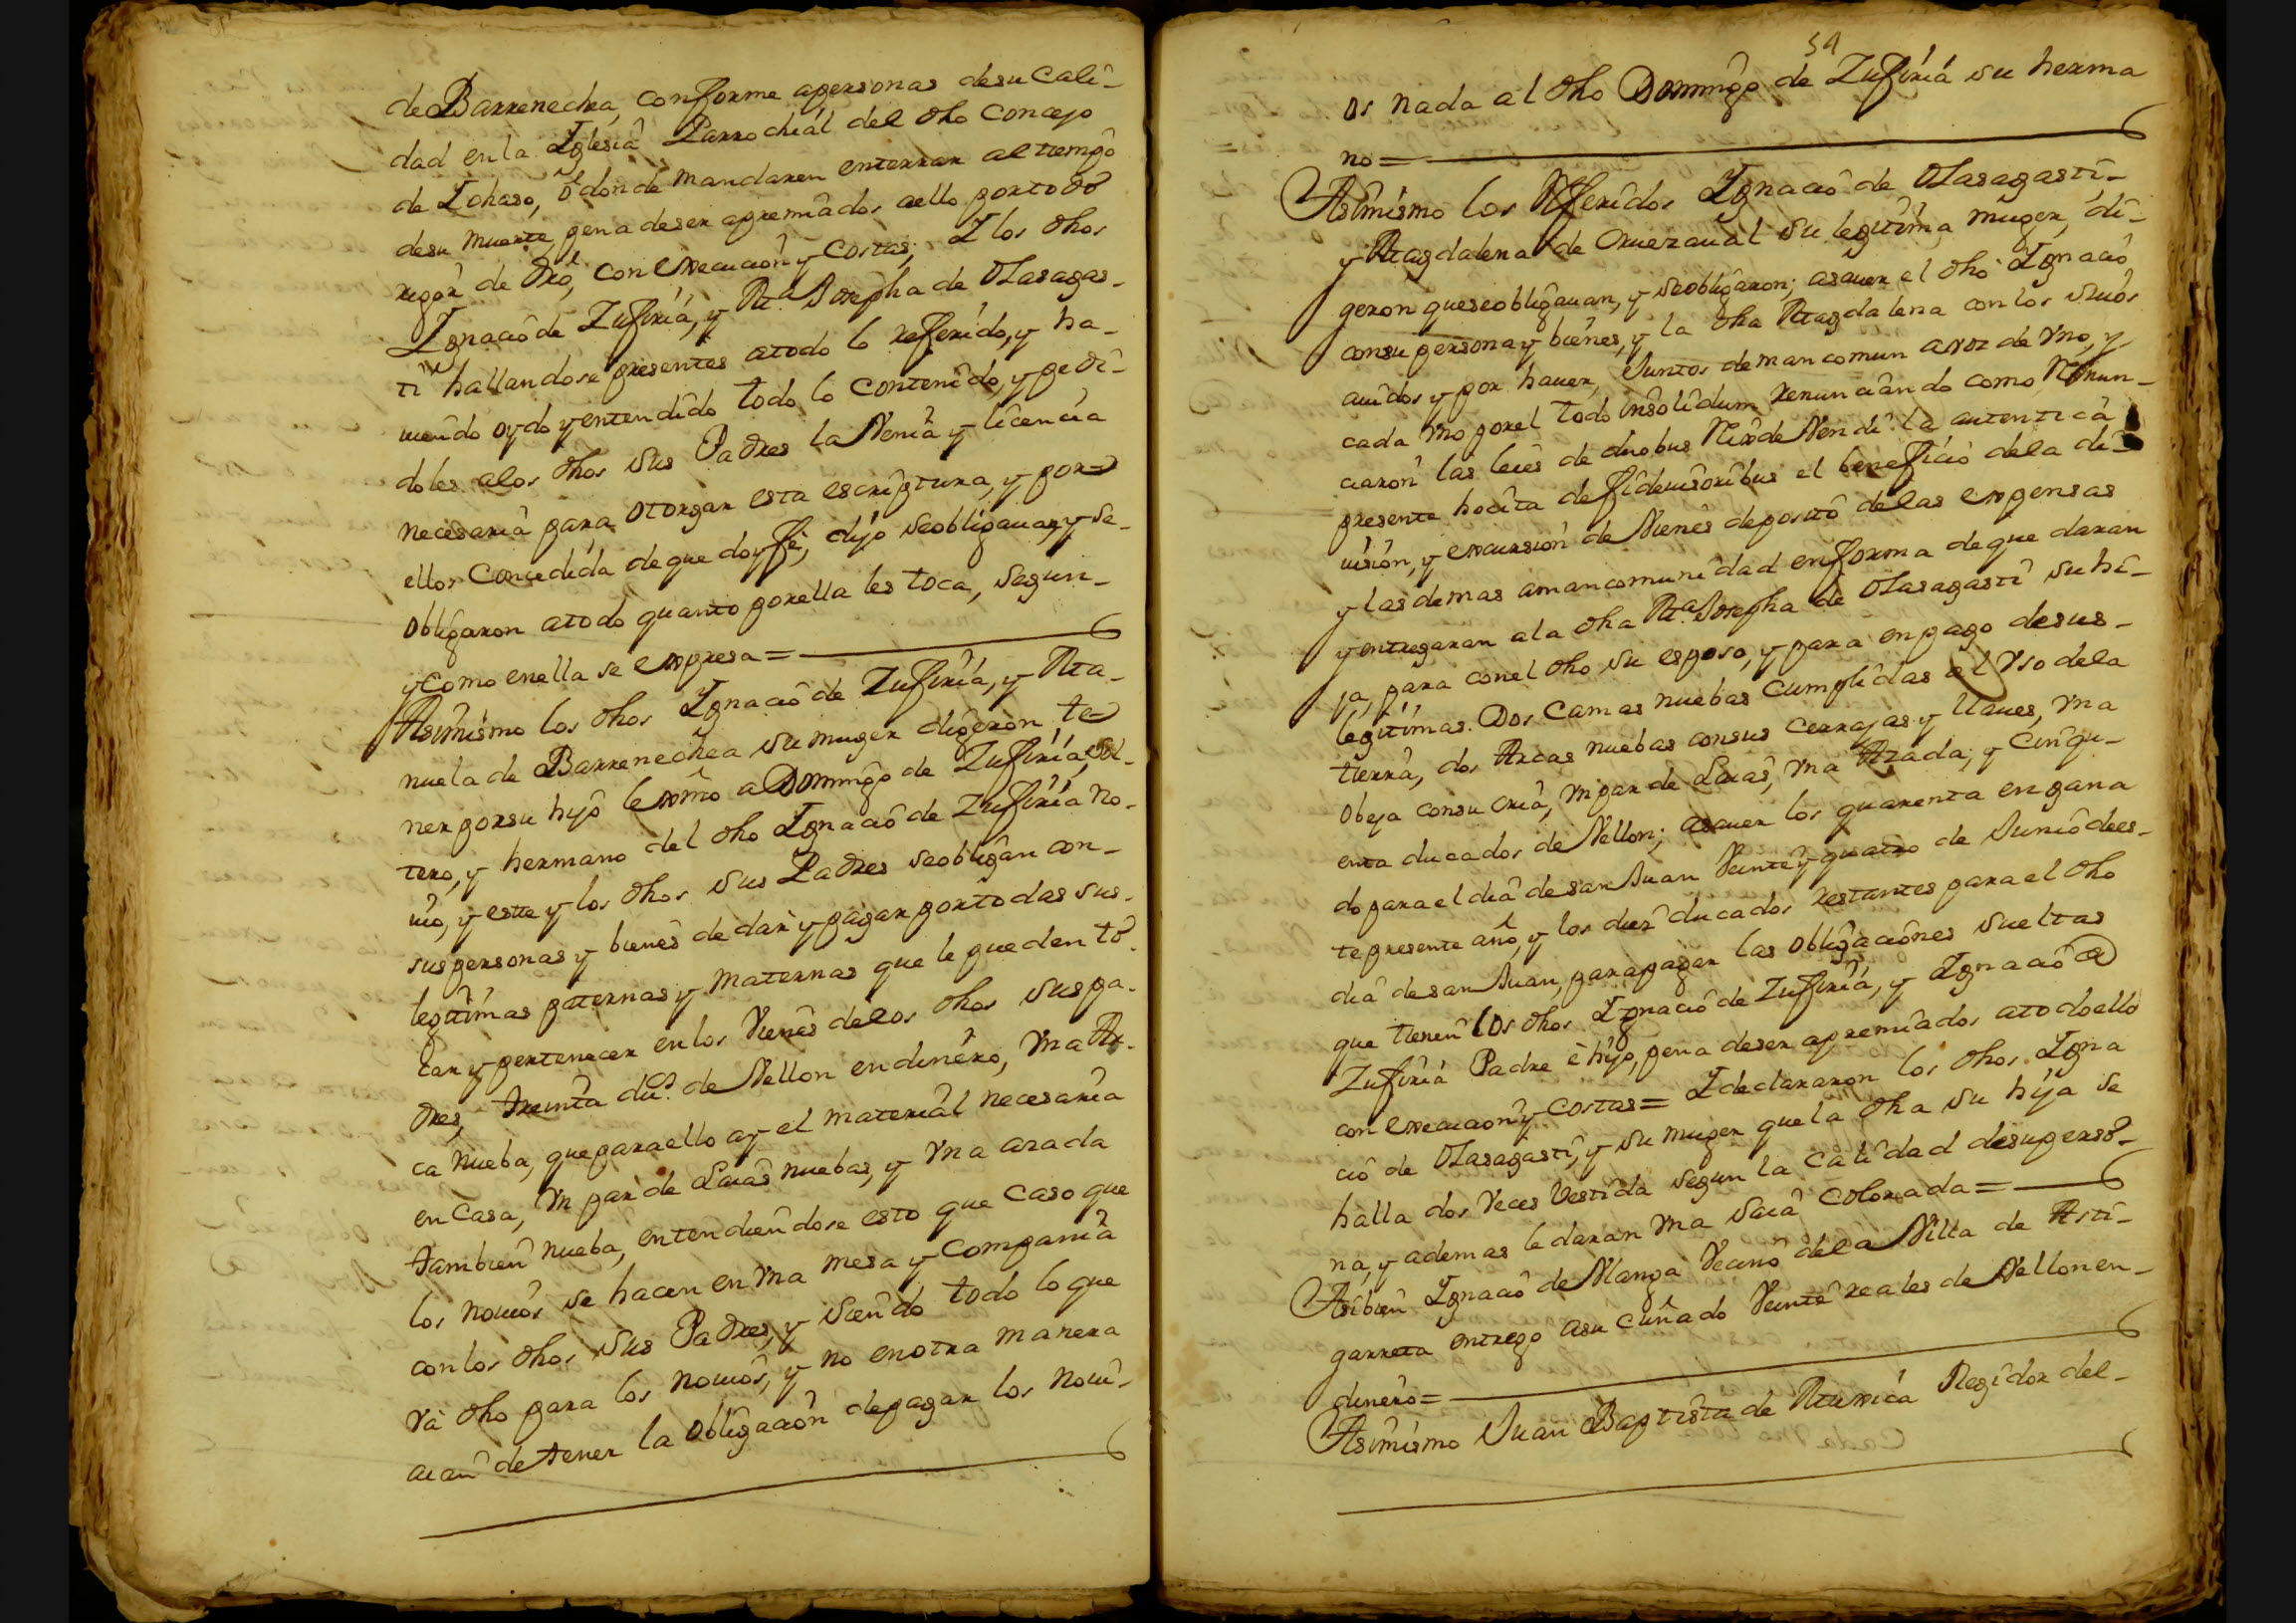 de Barrenechea, conforme apersonas desu Cali-
dad en la Iglesia Parrochial del dho Concejo
de Lohaso, ó donde mandaren enterrar al tiempo
desu muerte, pena deser apremiados aello portodo
rigor de dro, con execucion y costas; I los dhos
Ignacio de Zufiria, y Ma Josepha de Olasagas-
ti hallandose presentes atodo lo referido, y ha-
uiendo oydo y entendido todo lo Contenido, y pedi-
doles alos dhos sus Padres la Venia y licencia
necesaria para otorgar esta escriptura, y por
ellos Concedida de que doy fé, dijo seobligauan, y se-
obligaron atodo quanto porella les toca, segun-
y como enella se expresa=
Asimismo los dhos Ignacio de Zufiria, y Ma-
nuela de Barrenechea su muger digeron te
ner porsu hijo lexmo a Domingo de Zufiria, sol-
tero, y hermano del dho Ignacio de Zufiria no-
uio, y este y los dhos sus Padres seobligan con-
sus personas y bienes de dar y pagar portodas sus-
legitimas paternas y maternas que le pueden to-
car y pertenecer en los Vienes delos dhos suspa-
dres, treinta dus. de Vellon endinero, Vna Ar-
ca nueba, queparaello ay el material necesaria
en Casa, Vn par de Laias nuebas, y Vna azada
tambien nueba, entendiendose esto que caso que
los nouios se hacen en Vna mesa y Compania
con los dhos sus Padres, y siendo todo lo que
Va dho para los nouios, y no enotra manera
aian de tener la obligacion depagar los noui-
54
os nada al dho Domingo de Zufiria su herma
no=
Asimismo los Referidos Ignacio de Olasagasti-
y Magdalena de Oruezaual su legitima muger, di-
geron queseobligauan, y seobligaron; asauer el dho Ignacio
consu persona y bienes, y la dha Magdalena con los suios
auidos y por hauer, Juntos demancomun a voz de Vno, y
cada Vno porel todo insolidum renunciando como Renun-
ciaron las leies de duobus Reix de Vendi la autentica
presente hocita defideiusoribus el beneficio dela di-
uision, y excursion de Vienes deposito delas expensas
y las demas amancomunidad enforma de que daran
y entregaran ala dha Ma Josepha de Olasagasti su hi-
ja, para conel dho su esposo, y para enpago desus-
legitimas. Dos Camas nuebas Cumplidas al Vso dela
tierra, dos Arcas nuebas consus Cerrajas y llaues, Vna
obeja consu cria, Vn par de Laias, Vna Azada, y Cinqu-
enta ducados de Vellon; asauer los quarenta en gana
do para el dia de san Juan Veinte y quatro de Junio dees-
te presente año, y los diez ducados restantes para el dho
dia de san Juan, parapagar las obligaciones sueltas
que tienen los dhos Ignacio de Zufiria, y Ignacio @
Zufiria Padre é hijo, pena deser apremiados atodoello
con execucion y costas= I declararon los dhos Igna
cio de Olasagasti, y su muger que la dha su hija se
halla dos Veces Vestida segun la Calidad desuperso-
na, y ademas le daran Vna saia Colorada=
Asibien Ignacio de Vlanga Vecino dela Villa de Asti-
garreta entrego asu cuñado Veinte reales de Vellon en-
dinero=
Asimismo Juan Baptista de Regidor del-